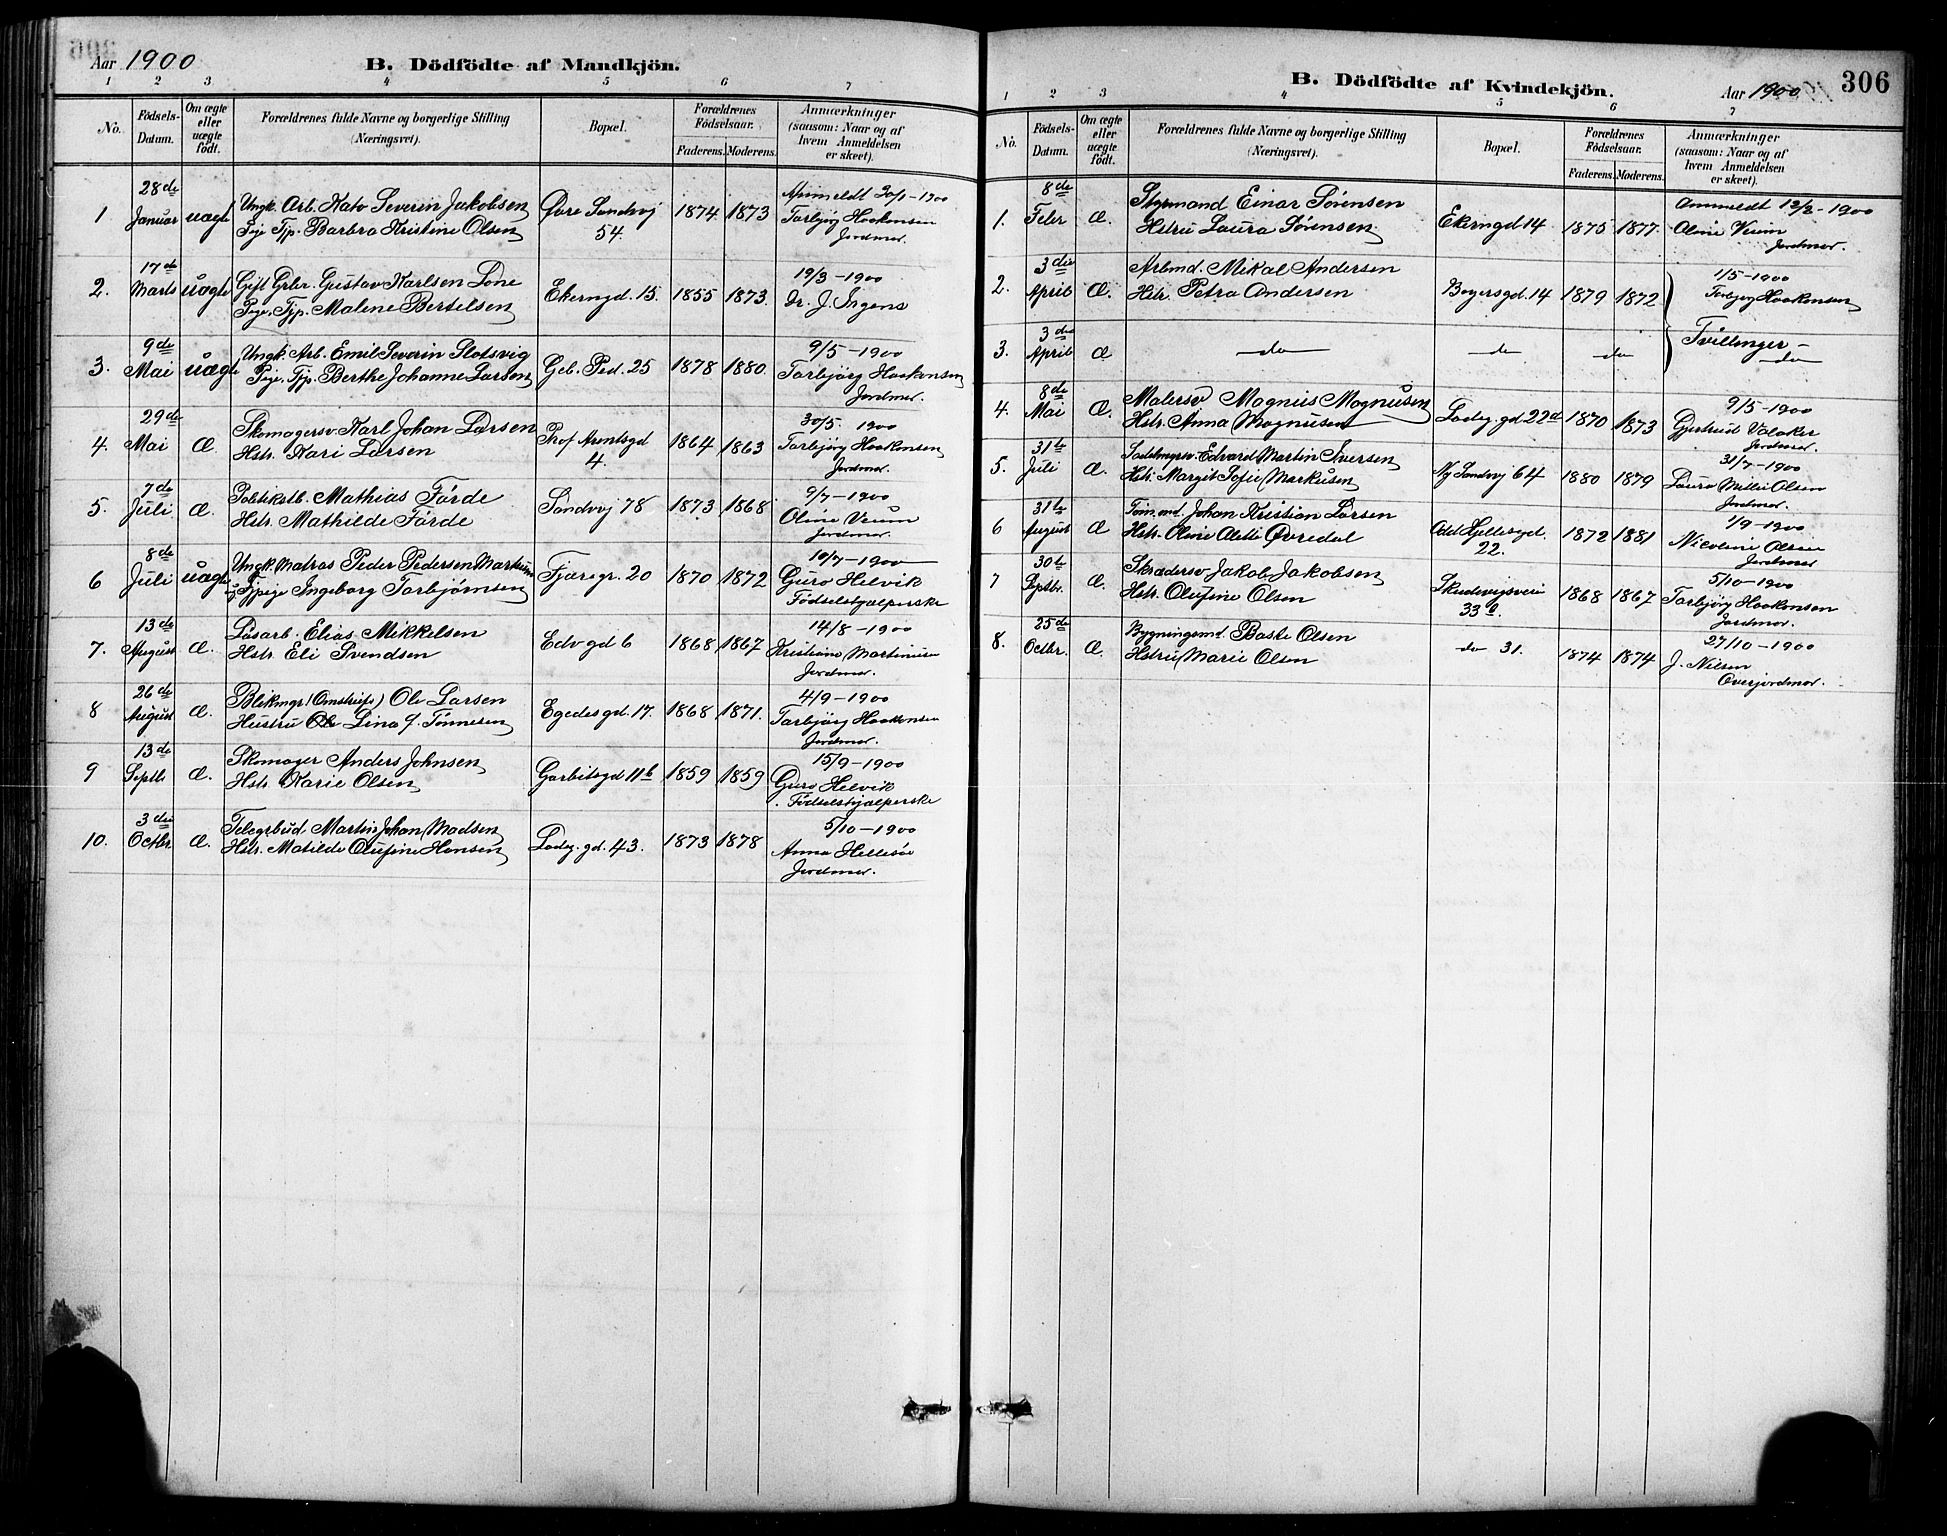 Aar 1900
B. Dödfödte af Mandkjön.
1 2 3 4 5 6 7
No.
Födsels-Datum.
Om ægte eller uægte født.
Forældrenes fulde Navne og borgerlige Stilling (Næringsvei).
Bopæl.
Forældrenes Födselsaar.
Faderens. Moderens.
Anmærkninger (saasom: Naar og af hvem Anmeldelsen er skeet).
1 28de Januar uægte
Ungk. Arb. Nato Severin Jakobsen
Pige Tjp. Barbra Kristine Olsen
Øvre Sandvig 54. 1874 1873
Anmeldt 30/1-1900
Torbjørg Haakensen
Jordmor.
2. 17de Marts uægte
Gift Grbr. Gustav Karlsen Lone
Pige, Tjp. Malene Bertelsen
Ekerngd. 15. 1855 1873.
19/3-1900
Dr. J. Irgens
3. 9de Mai uægte
Ungk. Arb. Emil Severin Slotsvig
Pige, Tjp. Berthe Johanne Larsen
Geb. Ped. 25 1878 1880
9/5-1900
Torbjörg Haakensen
Jordmor.
4. 29de Mai Æ
Skomagersv. Karl Johan Larsen
Hstr. Kari Larsen
Prof Arentsgd 4. 1864 1863
30/5. 1900
Torbjörg Haakensen
Jordmor.
5. 7de Juli Æ.
Politikstb. Mathias Førde
Hstr. Mathilde Førde
Sandvig 78 1873 1868
9/7-1900
Oline Veum
Jordmor
6 8de Juli uægte
Ungk. Matros Peder Pedersen
Tjpige Ingeborg Torbjørnsen
Fjæregr. 20 1870 1872
10/7-1900
Guro Helvik
Födselshjælperske
7. 13de August Æ.
Løsarb. Elias Mikkelsen
Hstr. Eli Svendsen
Edv gd 6 1868 1867
14/8-1900
Kristiane Martinusen
Jordmor.
8 26de August Æ.
Blikmgr. Ole Larsen
Hustru Lina f. Tønnesen
Egedesgd. 17. 1868 1871.
4/9-1900
Torbjörg Haakensen
Jordmor.
9 13de Septb. Æ.
Skomager Anders Johnsen
Hstr. Karie Olsen
Garbitsgd 11b 1859 1859
15/9-1900
Guro Helvik
Födselshjælperske
10. 3die Octbr. Æ.
Telegrbud. Martin Johan Madsen
Hstr. Matilde Olufine Hansen
Ladeg. gd. 43. 1873 1878
5/10-1900
Anna Hellesöe
Jordmor.
B. Dödfödte af Kvindekjön.
Aar 1900 306
1 2 3 4 5 6 7
No.
Födsels-Datum.
Om ægte eller uægte født.
Forældrenes fulde Navne og borgerlige Stilling (Næringsvei).
Bopæl.
Forældrenes Födselsaar.
Faderens. Moderens.
Anmærkninger (saasom: Naar og af hvem Anmeldelsen er skeet).
1. 8de Febr Æ.
Styrmand Einar Sørensen
Hstru Laura Sørensen
Ekerngd 14 1875 1877.
Anmeldt 12/2-1900
Oline Veum
Jordmor.
2. 3die April Æ.
Arbmd. Mikal Andersen
Hstr. Petra Andersen
Bøyersgd. 14 1879 1872
1/5-1900
Torbjørg Haakensen
3. 3die April Æ
do do do
Tvillinger -
do
4. 8de Mai Æ.
Malersv Magnus Magnusen
Hstr. Anna Magnusen
Ladeg. gd 22d 1870 1873
9/5-1900
Gjertrud Valaker
Jordmor.
5. 31te Juli Æ.
Sadelmgrsv. Edvard Martin Iversen
Hstr. Margit Sofie Markusen
Ny Sandvig 64 1880 1879
31/7-1900
Laura Millie Olsen
Jordmor.
6 31te August Æ
Tøm.md. Johan Kristian Larsen
Hstr. Oline Aletti Øvredal
Odd Hjeltesgd. 22. 1872 1881
1/9-1900
Nicoline Olsen
Jordmor
7 30te Septbr. Æ.
Skræddersv Jakob Jakobsen
Hstr. Olufine Olsen
Skudevigsveien 33b 1868 1867
5/10-1900
Torbjörg Haakensen
Jordmor.
8. 25de Octbr. Æ.
Bygningsmd. Baste Olsen
Hstru Marie Olsen
do 31. 1874 1874
27/10-1900
J. Nilsen
Overjordmor.